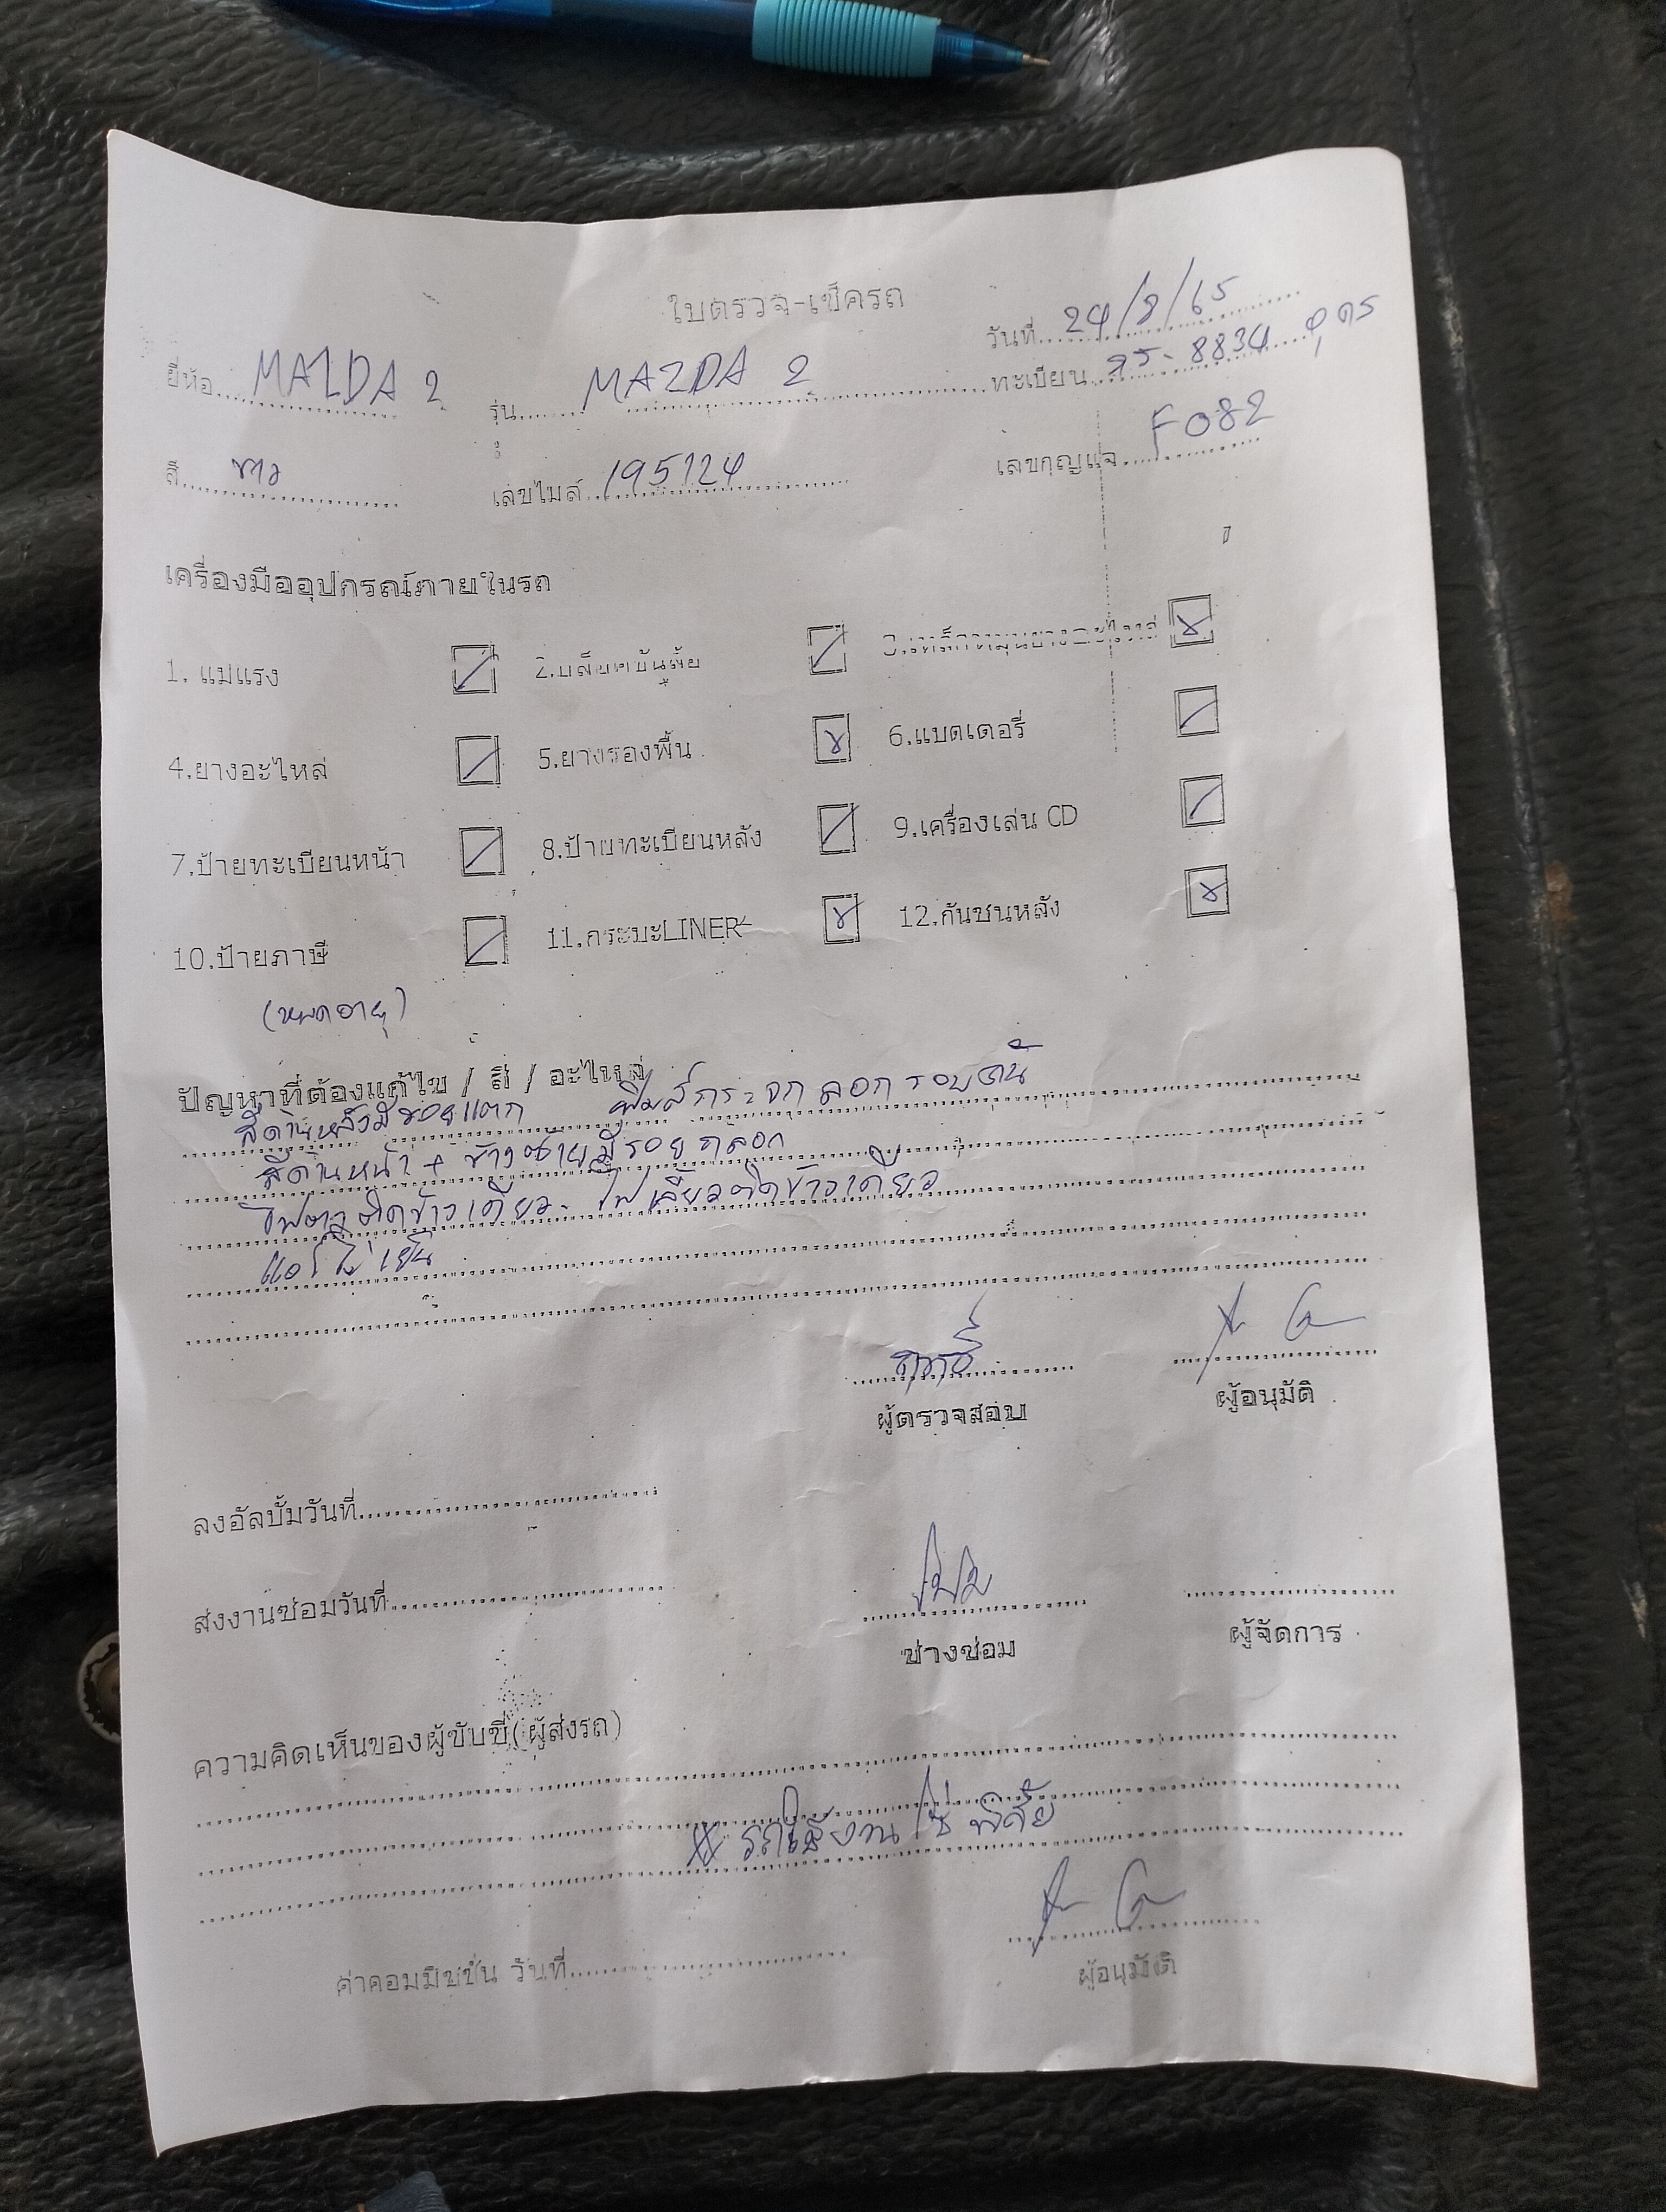 ใบตรวจ-เช็ครถ
วันที่ 24/8/65
ยี่ห้อ MAZDA 2 รุ่น MAZDA 2 ทะเบียน 8834
สี ขาว เลขไมล์ 195124 เลขกุญแจ F082
เครื่องมืออุปกรณ์ภายในรถ
1. แม่แรง 2.บล็อคขันล้อ
4.ยางอะไหล่ 5.ยางรองพื้น 6.แบตเตอรี่
7.ป้ายทะเบียนหน้า 8.ป้ายทะเบียนหลัง 9.เครื่องเล่น CD
10.ป้ายภาษี 11.กระบะLINER 12.กันชนหลัง
(หมดอายุ)
ปัญหาที่ต้องแก้ไข / สี / อะไหล่
สีด้านหลังมีรอยแตก ฟิมส์กระจกลอกรอบคัน
สีด้านหน้า + ข้างซ้ายมีรอยถลอก
ไฟตาติดข้างเดียว ไฟเลี้ยวติดข้างเดียว
แอร์ไม่เย็น
ผู้ตรวจสอบ ผู้อนุมัติ
ลงอัลบั้มวันที่
ส่งงานซ่อมวันที่
ช่างซ่อม ผู้จัดการ
ความคิดเห็นของผู้ขับขี่(ผู้ส่งรถ)
รถใช้งาน
ค่าคอมมิชชั่น วันที่ ผู้อนุมัติ